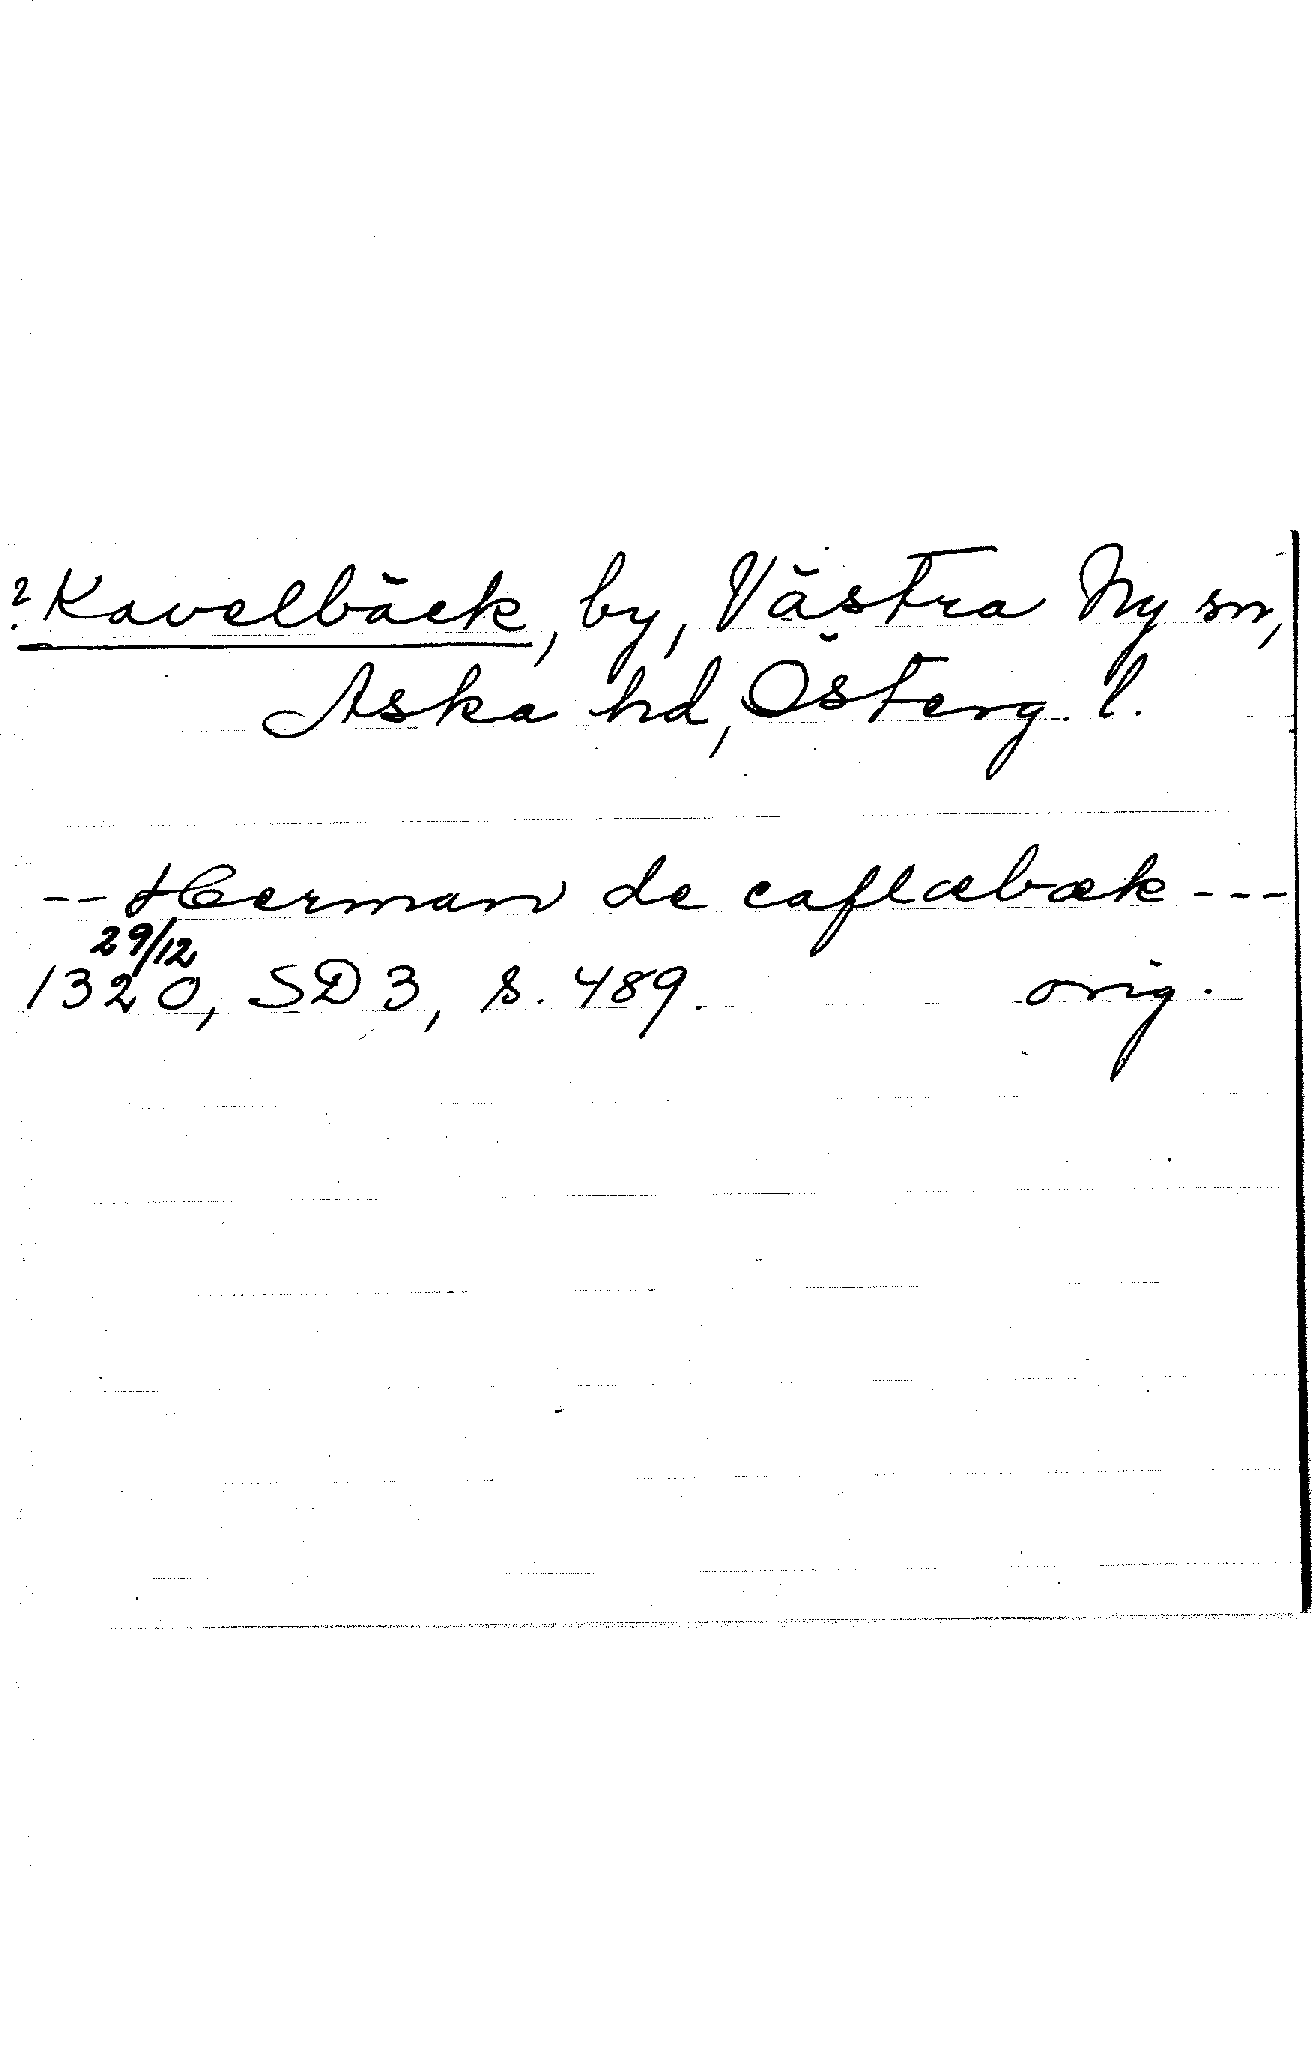 ? Kavelbäck, by, Västra Ny sn,
Aska hd, Österg. l.
-- Herman de caflæbæk ---
29/12
1320, SD 3, s. 489. orig.